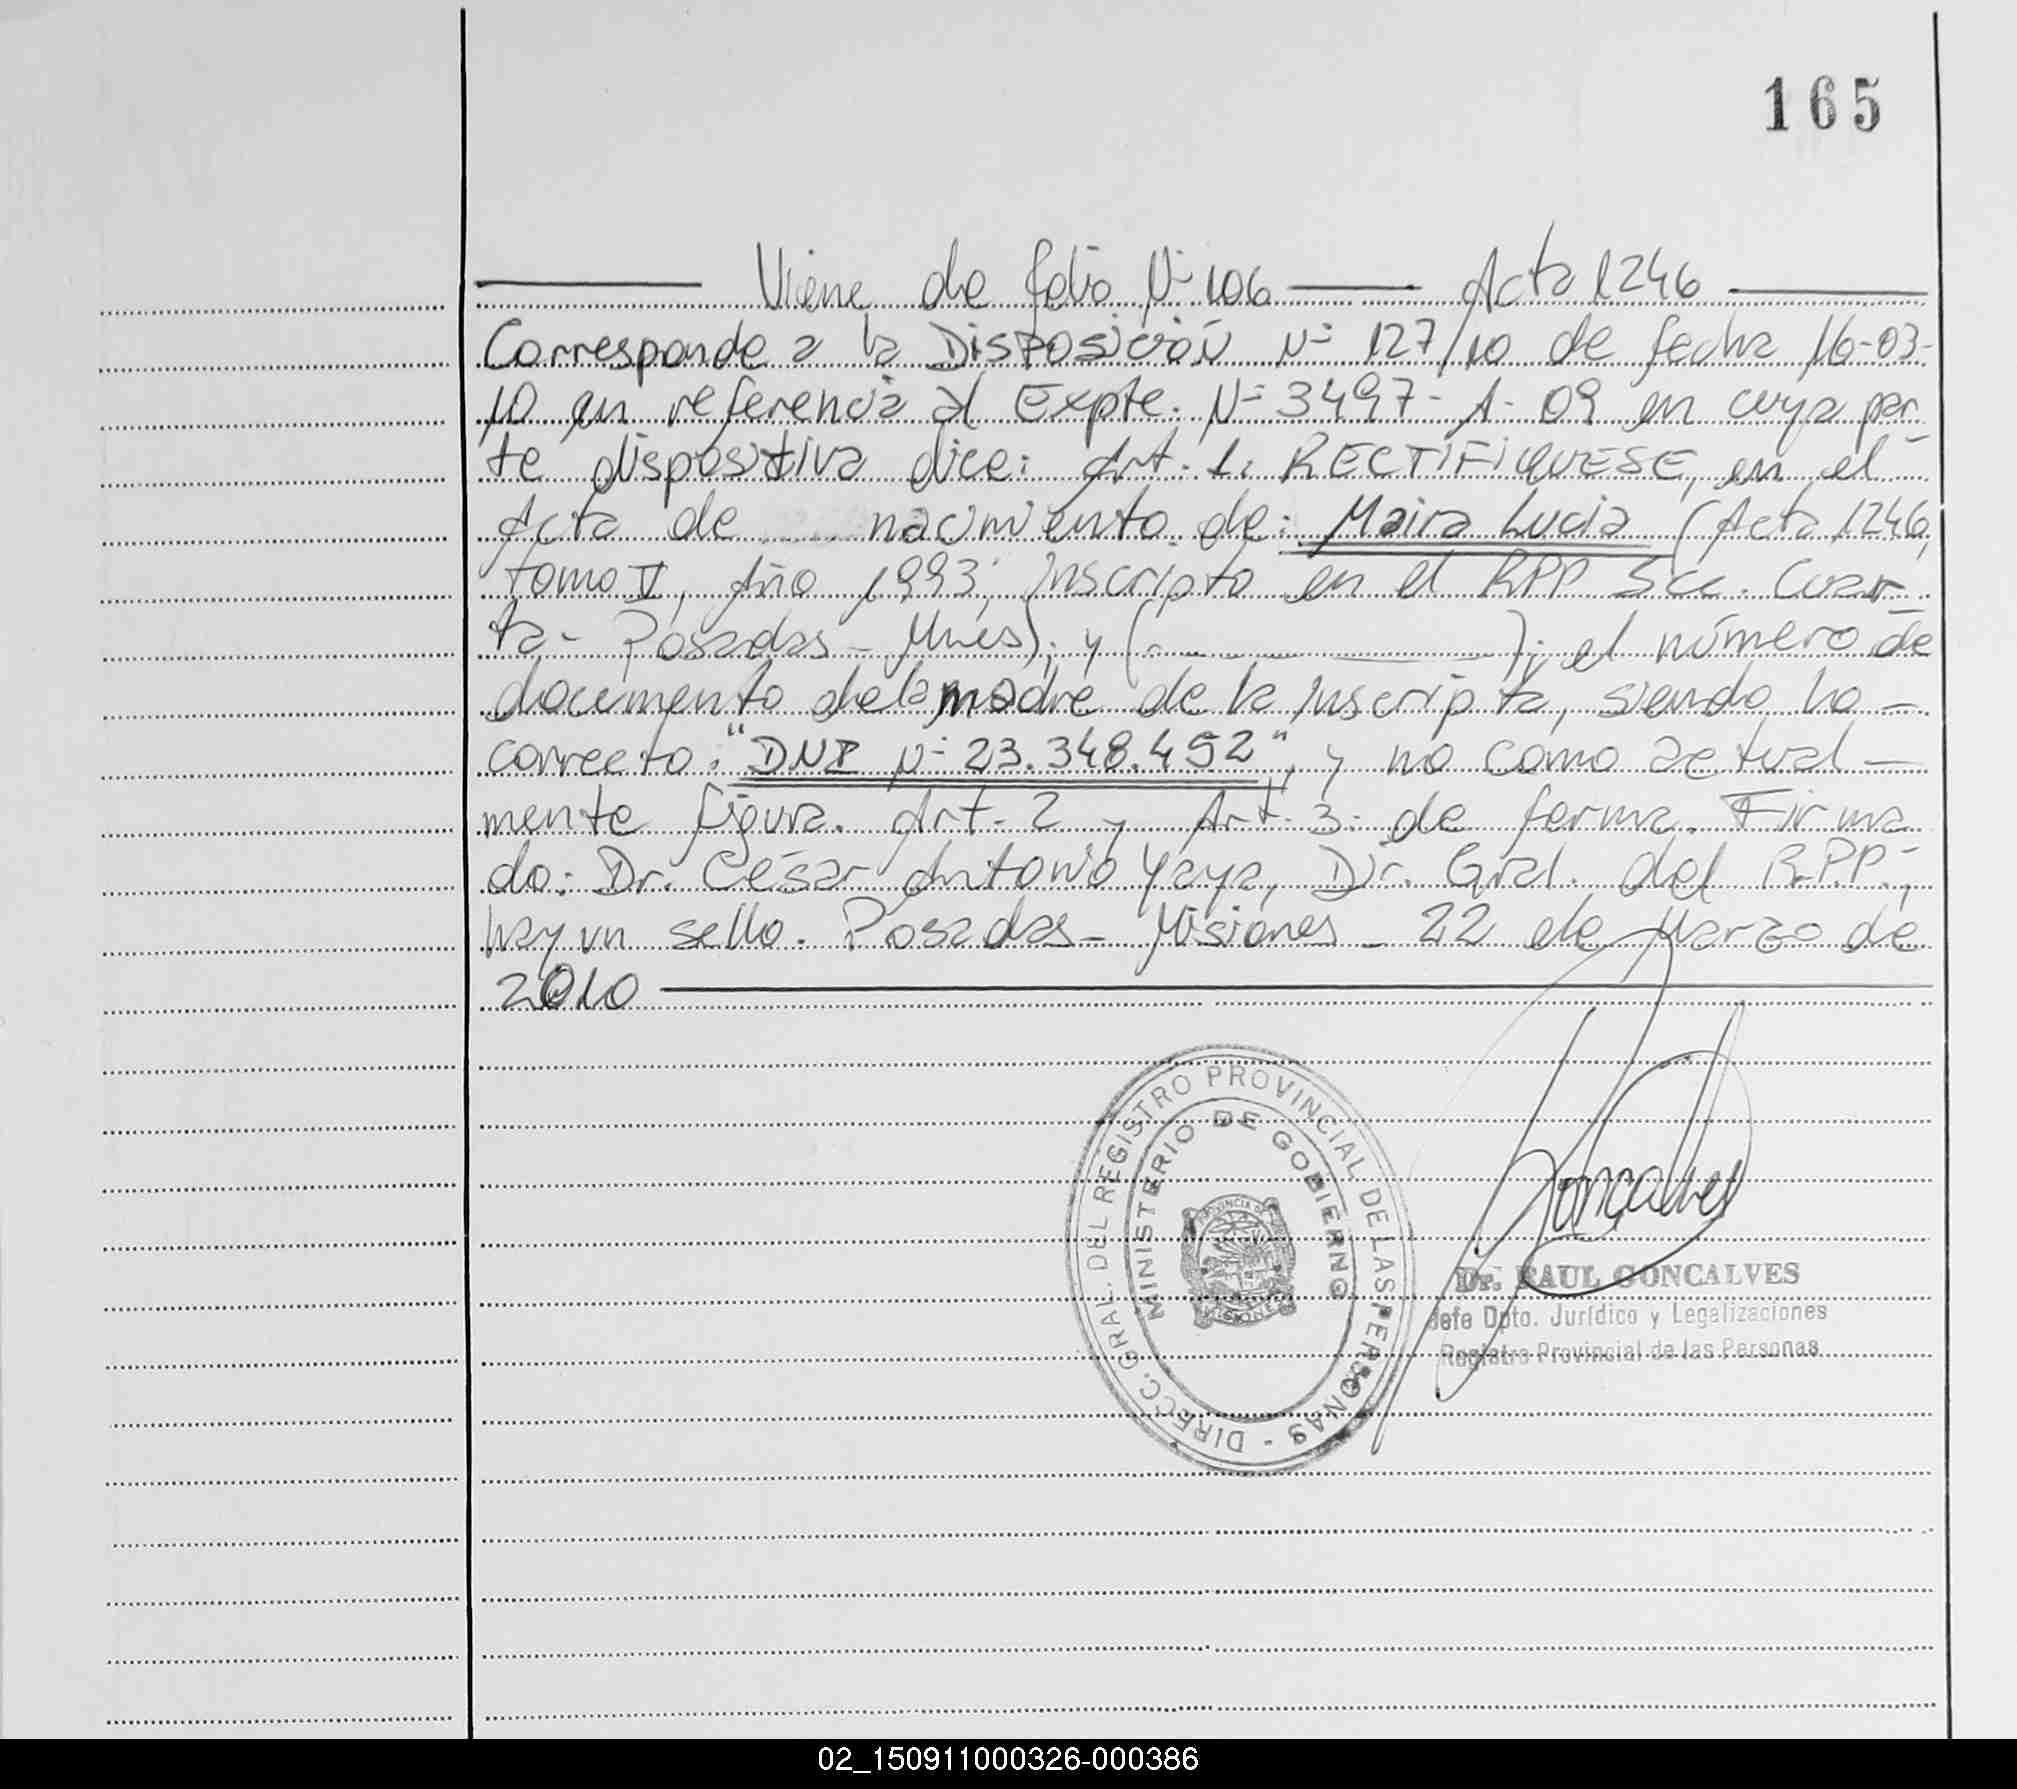 165
Viene de folio N° 106 — Acta 1246
Corresponde a la Disposición N° 127/10 de fecha 16-03-
10 en referencia al Expte. N° 3497-A-09 en cuya par
te dispositiva dice: Art. 1: RECTIFIQUESE, en el
Acta de nacimiento de: Maira Lucia (Acta 1246,
Tomo V, Año 1993, inscripto en el RPP Scc. Cuar
ta - Posadas - Mnes); y ( ); el número de
documento de la madre de la inscripta, siendo lo -
correcto: "DNI N° 23.348.452", y no como actual -
mente figura. Art. 2 y Art. 3: de forma. Firma
do: Dr. César Antonio Yaya, Dir. Gral. del R.P.P.,
hay un sello. Posadas - Misiones - 22 de Marzo de
2010
DIRECC. GRAL. DEL REGISTRO PROVINCIAL DE LAS PERSONAS -
MINISTERIO DE GOBIERNO
PROVINCIA DE
MISIONES
Goncalves
Dr. RAUL GONCALVES
Jefe Dpto. Jurídico y Legalizaciones
Registro Provincial de las Personas
02_150911000326-000386